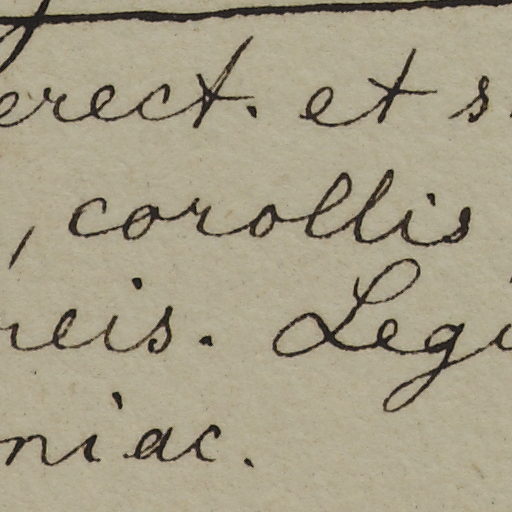 erect. et s
, corollis
reis. Legi
niac.